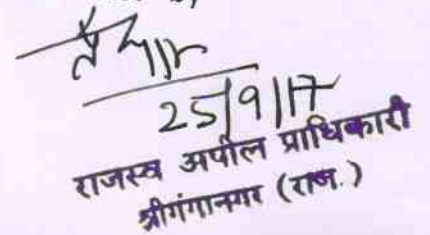 25/9/17
राजस्व अपील प्राधिकारी
श्रीगंगानगर (राज.)